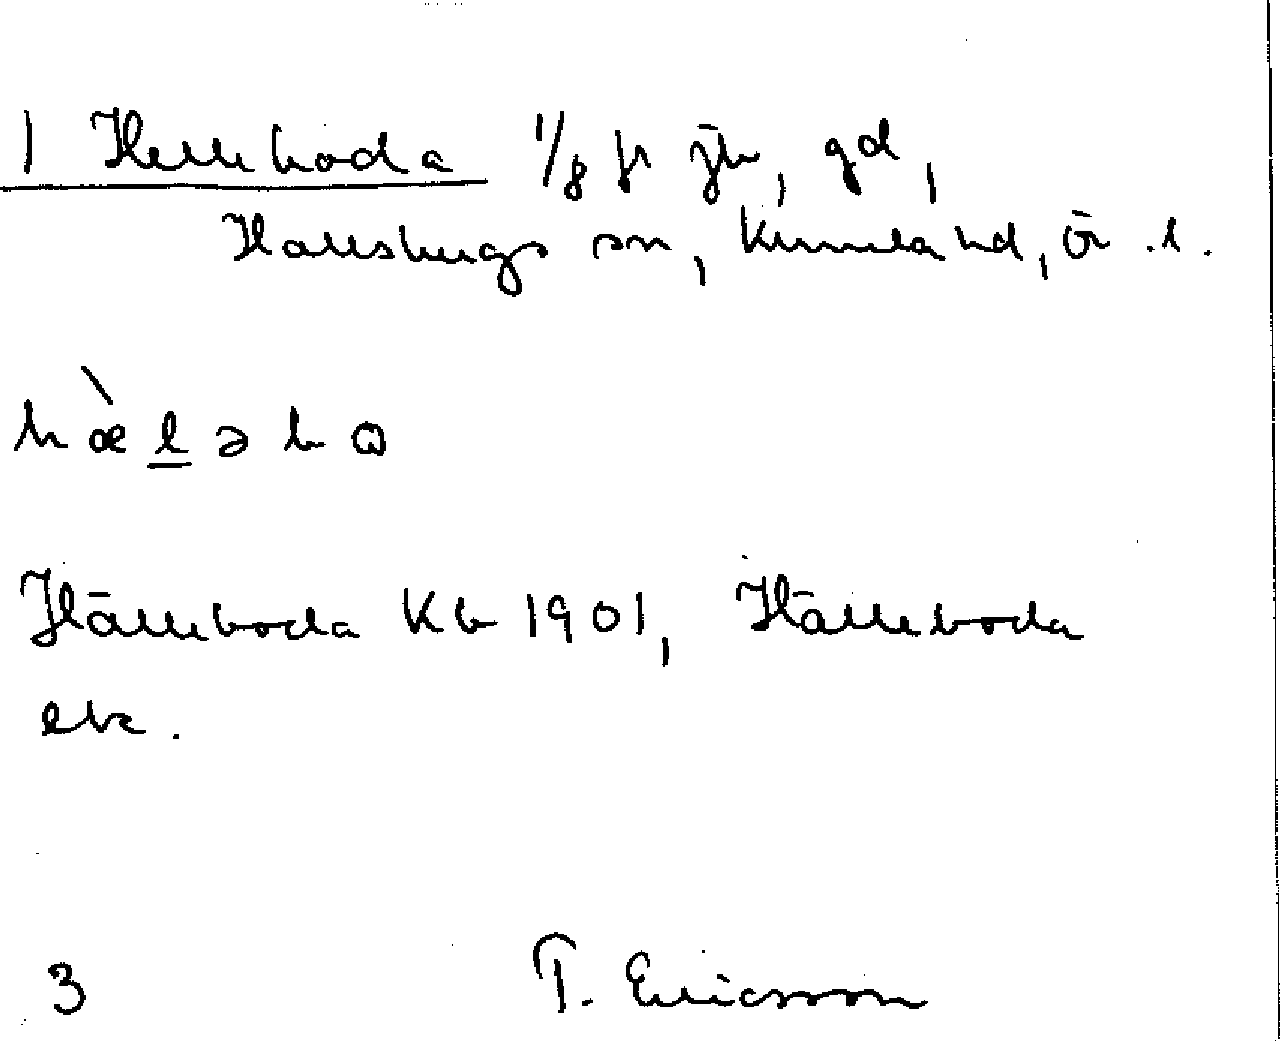 1 Helleboda 1/8 fr jb, gd,
Hallsbergs sn, Kumla hd, Ör.l.
hæ̀ləbɑ
Hälleboda Kb 1901, Hälleboda
etc.
3 T. Ericsson